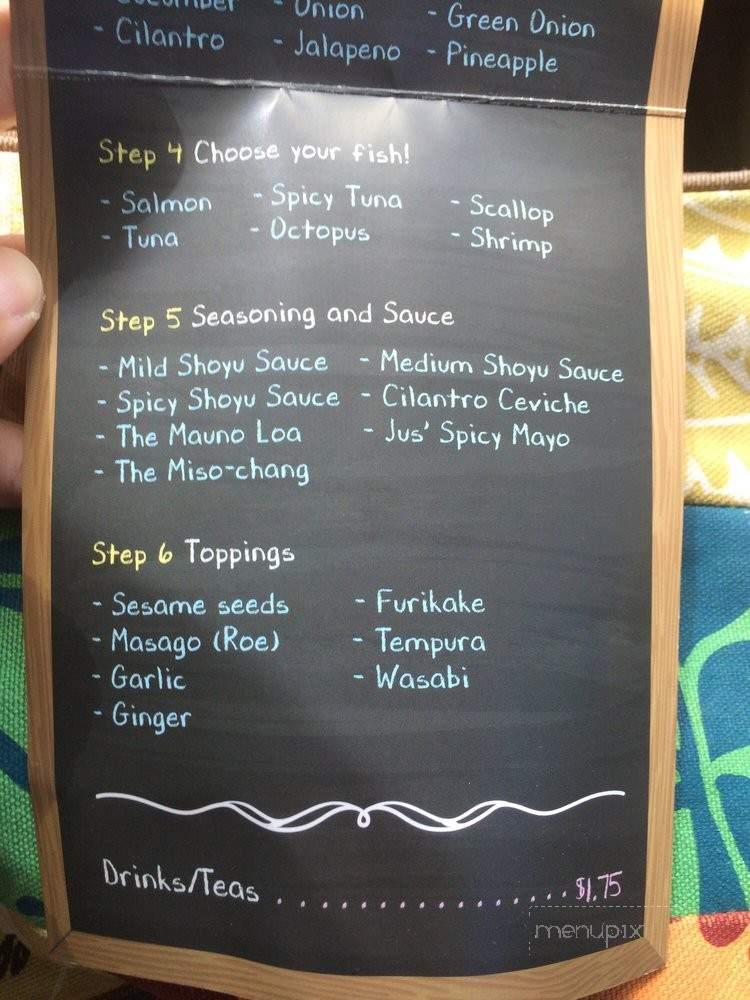 Cucumber - Onion - Green Onion
- Cilantro - Jalapeno - Pineapple
Step 4 Choose your fish!
- Salmon - Spicy Tuna - Scallop
- Tuna - Octopus - Shrimp
Step 5 Seasoning and Sauce
- Mild Shoyu Sauce - Medium Shoyu Sauce
- Spicy Shoyu Sauce - Cilantro Ceviche
- The Mauno Loa - Jus' Spicy Mayo
- The Miso-chang
Step 6 Toppings
- Sesame seeds - Furikake
- Masago (Roe) - Tempura
- Garlic - Wasabi
- Ginger
Drinks/Teas . . . . . . . . . . . . . . . . . $1.75
menupix